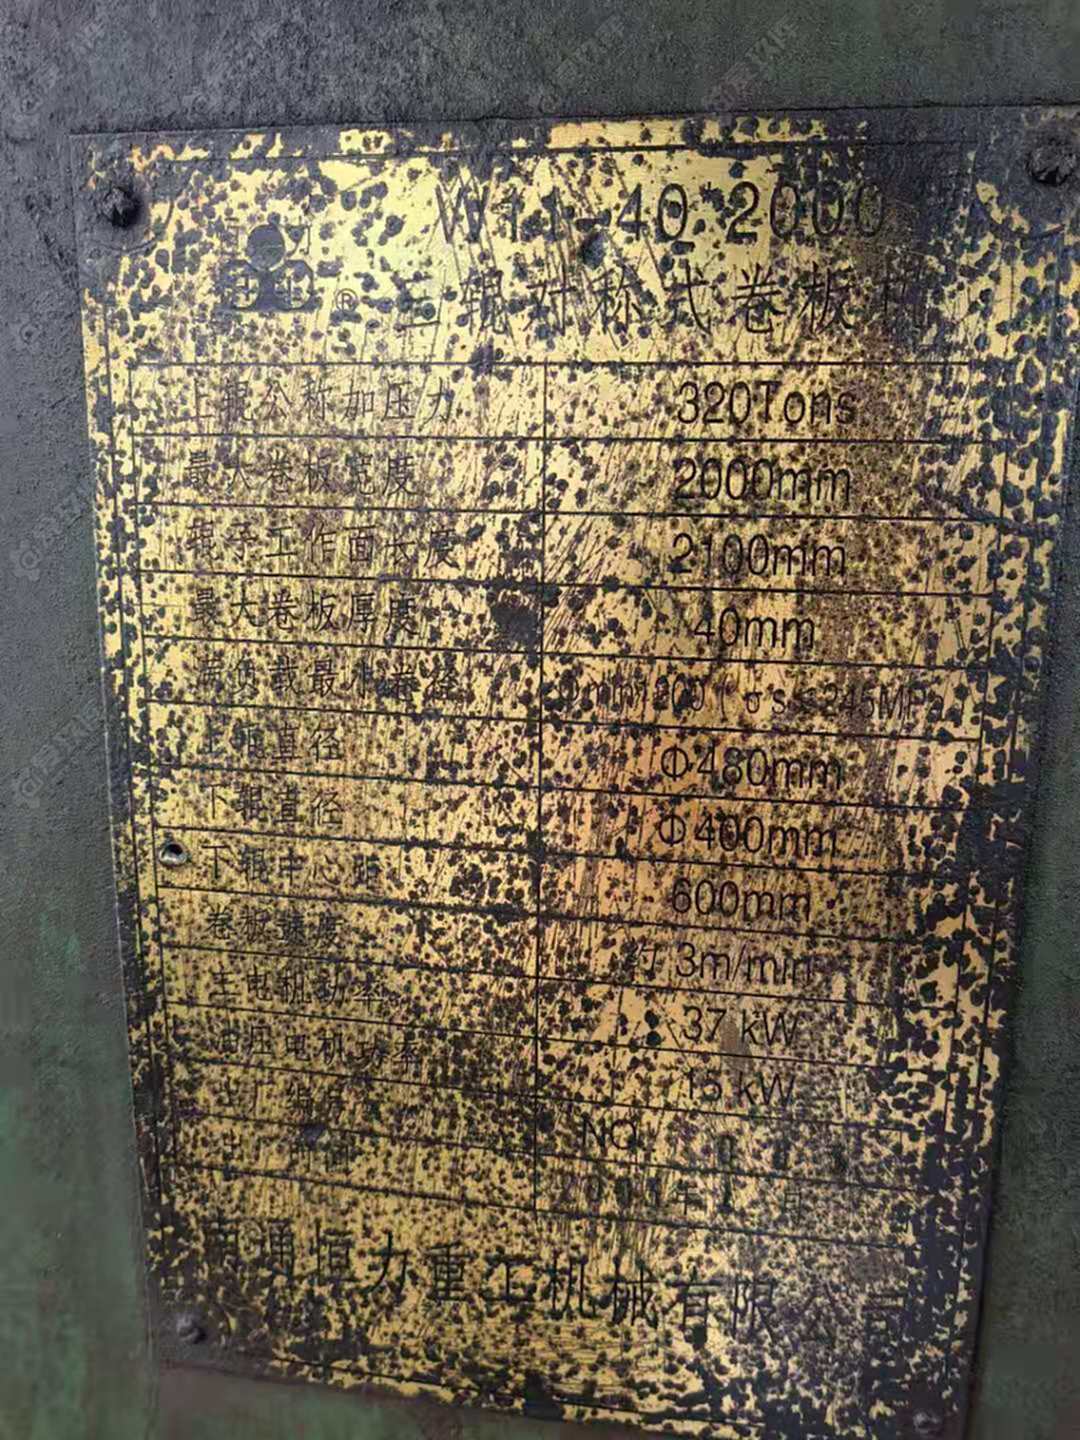 W11-40*2000
® 三辊对称式卷板机
上辊公称加压力 320Tons
最大卷板宽度 2000mm
辊子工作面长度 2100mm
最大卷板厚度 40mm
满负载最小卷径 σs≤245MPa
上辊直径 Φ480mm
下辊直径 Φ400mm
下辊中心距 600mm
卷板速度 约 3m/min
主电机功率 37 kW
液压电机功率 15 kW
NO
年 月
南通恒力重工机械有限公司